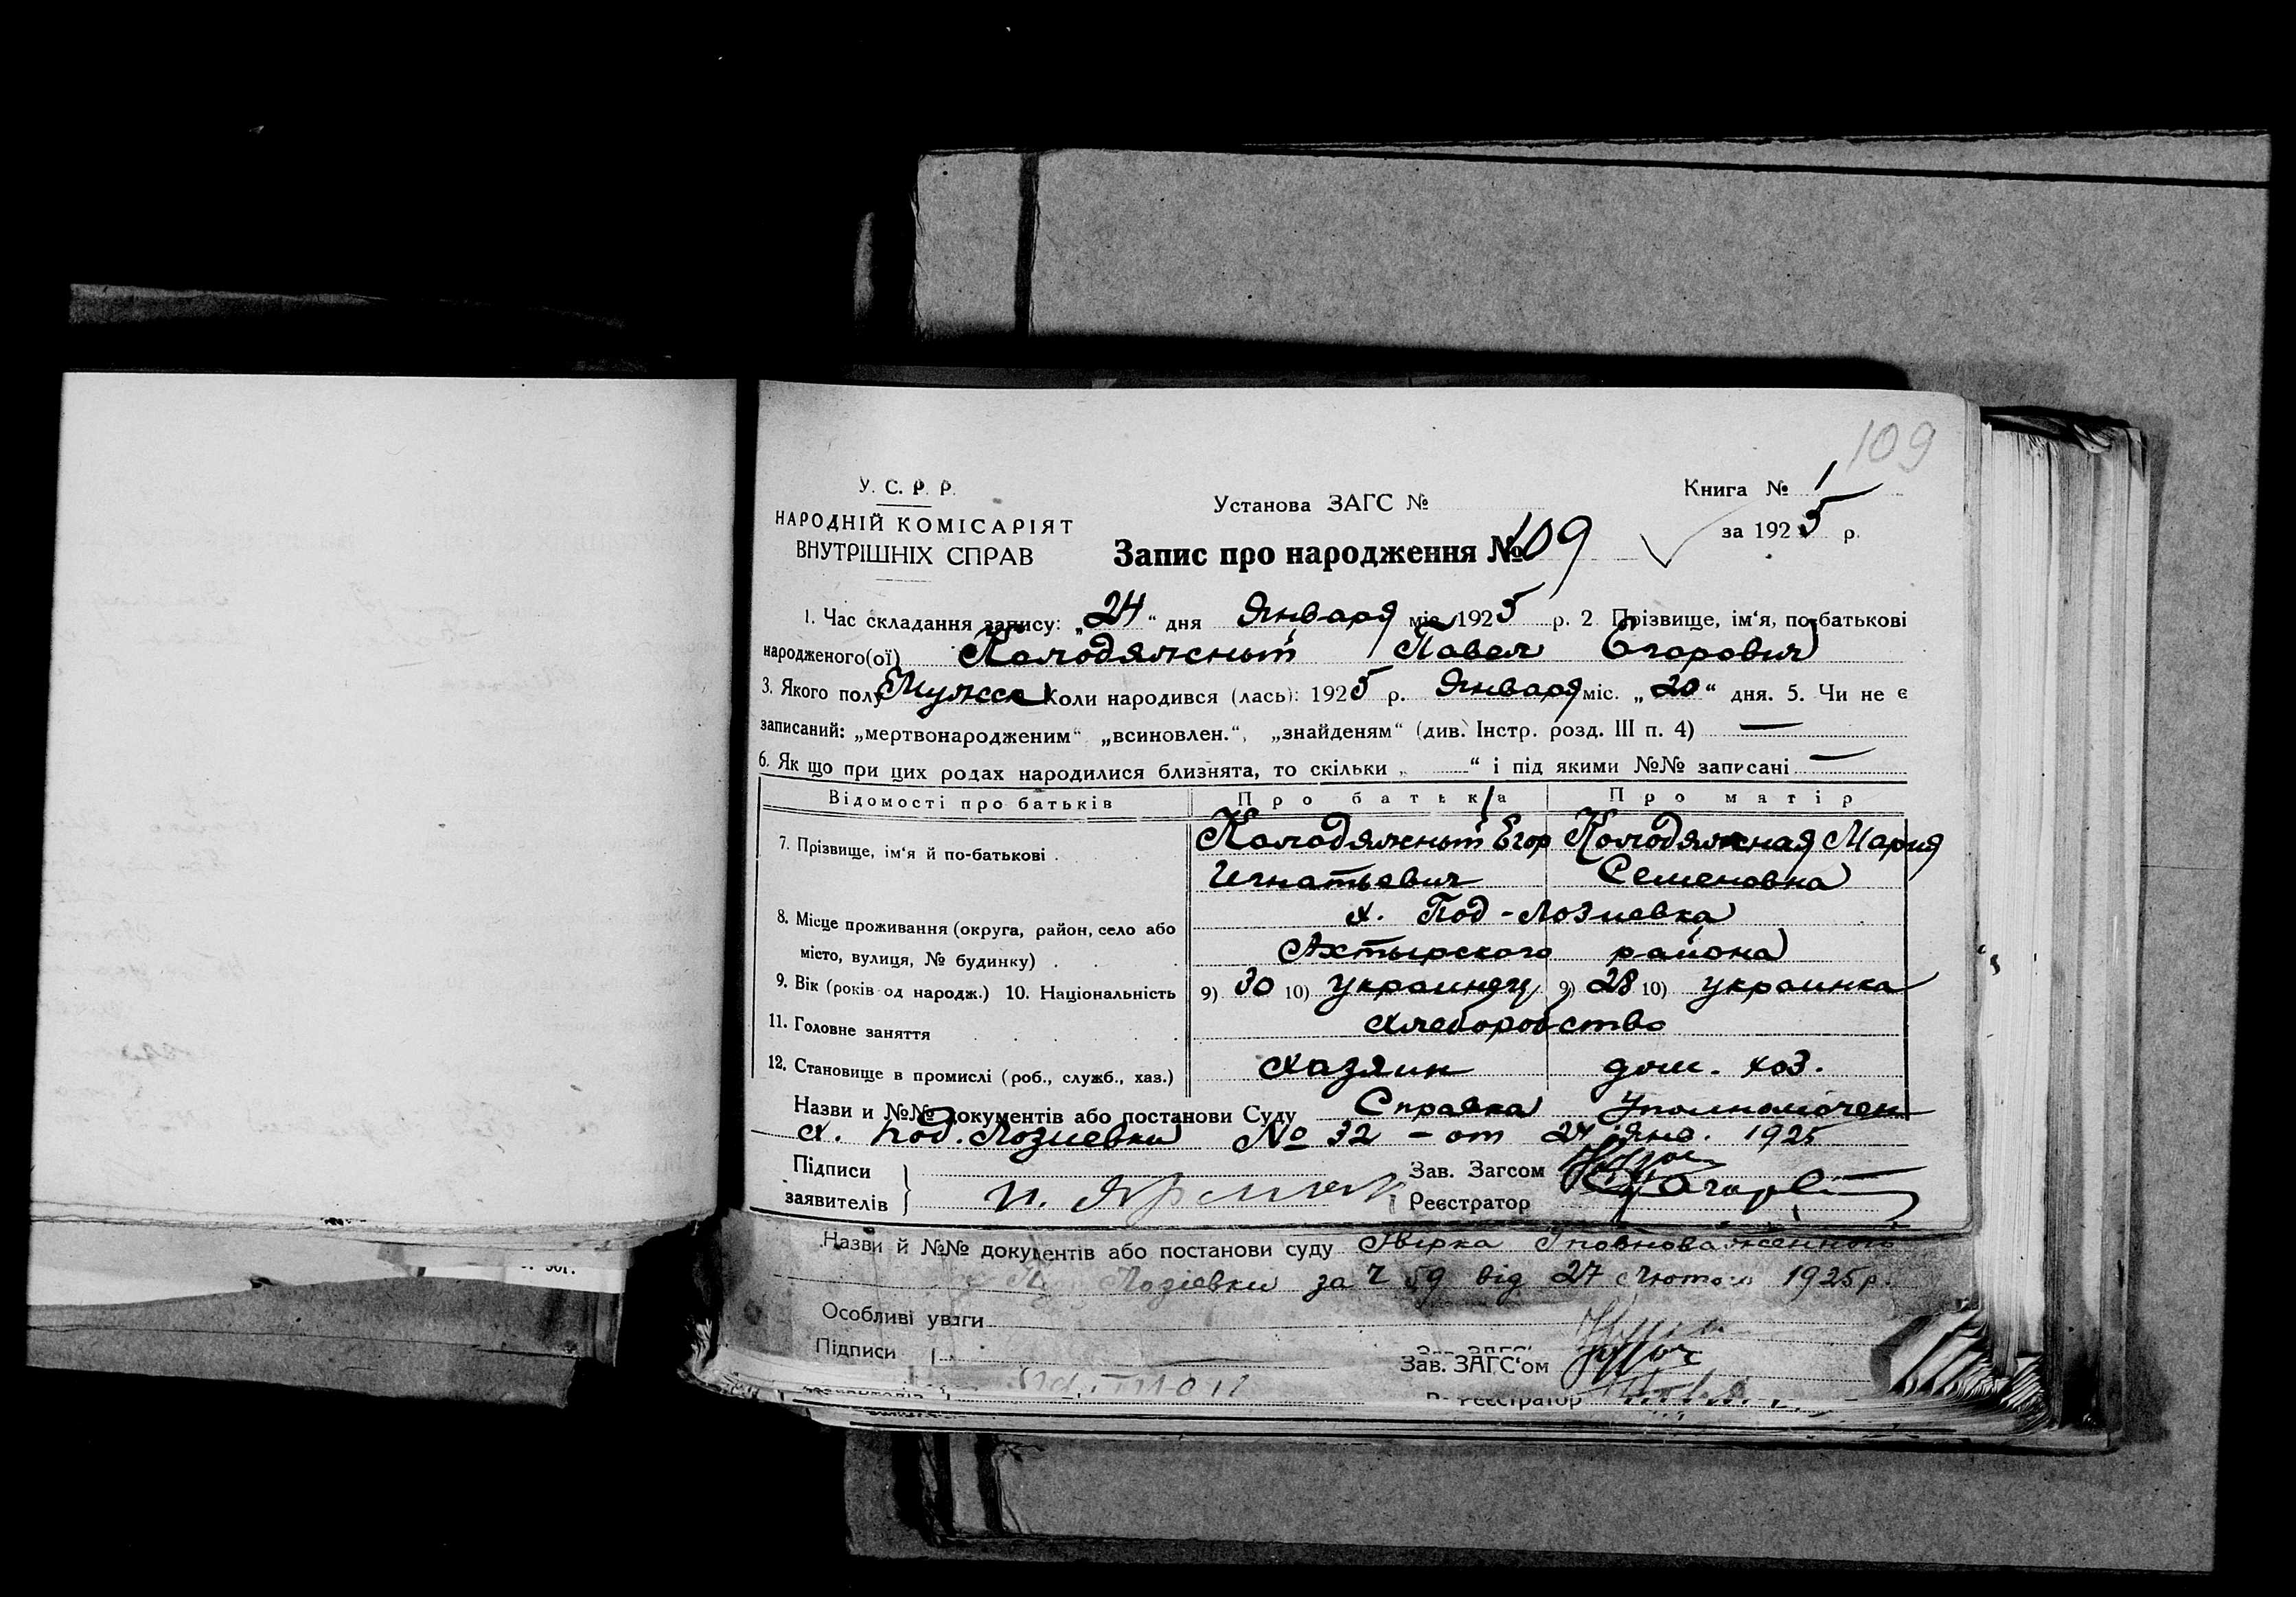 109
У. С. Р. Р.
НАРОДНІЙ КОМІСАРІЯТ
ВНУТРІШНІХ СПРАВ
Установа ЗАГС №
Книга № 1
за 1925 р.
Запис про народження № 109
1. Час складання запису: „24“ дня Января міс. 1925 р. 2. Прізвище, ім‘я, по-батькові
народженого(ої) Колодяжный Павел Егорович
3. Якого полу Мужск Коли народився (лась): 1925 р. Января міс. „20“ дня. 5. Чи не є
записаний: „мертвонародженим“ „всиновлен.“, „знайденям“ (див. Інстр. розд. III п. 4) —
6. Як що при цих родах народилися близнята, то скільки „ “ і під якими №№ записані —
Відомості про батьків Про батька Про матір
7. Прізвище, ім‘я й по-батькові . Колодяжный Егор Колодяжная Мария
Игнатьевич Семеновна
8. Місце проживання (округа, район, село або х. Под-Лозиевка
місто, вулиця, № будинку) . Ахтырского района
9. Вік (років од народж.) 10. Національність 9) 30 10) украинец 9) 28 10) украинка
11. Головне заняття хлеборобство
12. Становище в промислі (роб., служб., хаз.) хазяин дом. хоз.
Назви и №№ документів або постанови Суду Справка Уполномочен
х. Под. Лозиевки № 32 - от 24 Янв. 1925
Підписи
заявителів
Зав. Загсом
Реєстратор
Назви й №№ документів або постанови суду Уповноваженного
Лозіевки за Ч 59 від 27 Лютого 1925 р.
Особливі уваги
Підписи
Зав. ЗАГС‘ом
Реєстратор